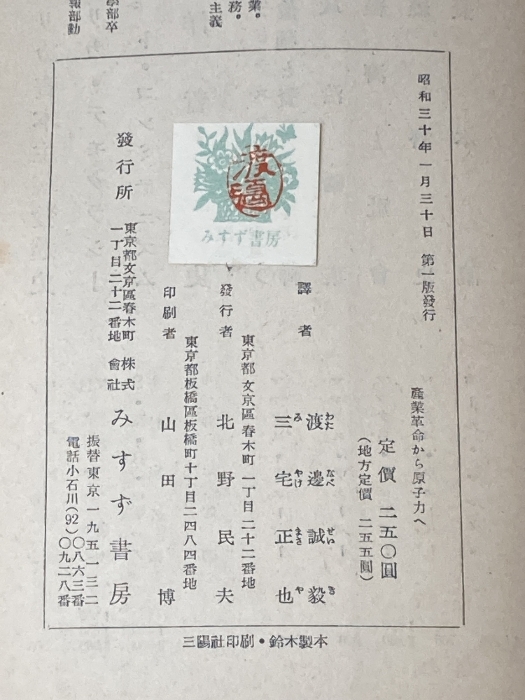 業。
務。
主義
學部卒
報部勤
昭和三十年一月三十日　第一版發行
産業革命から原子力へ
定價　二五〇圓
（地方定價　二五五圓）
譯者
渡邊誠毅
わたなべせいき
三宅正也
みやけまさや
發行者
東京都文京區春木町一丁目二十二番地
北野民夫
印刷者
東京都板橋區板橋町十丁目二四八四番地
山田博
みすず書房
發行所
東京都文京區春木町
一丁目二十二番地
株式會社
みすず書房
振替東京一九五一三二
電話小石川(92)
〇八六三番
〇九二八番
三陽社印刷・鈴木製本